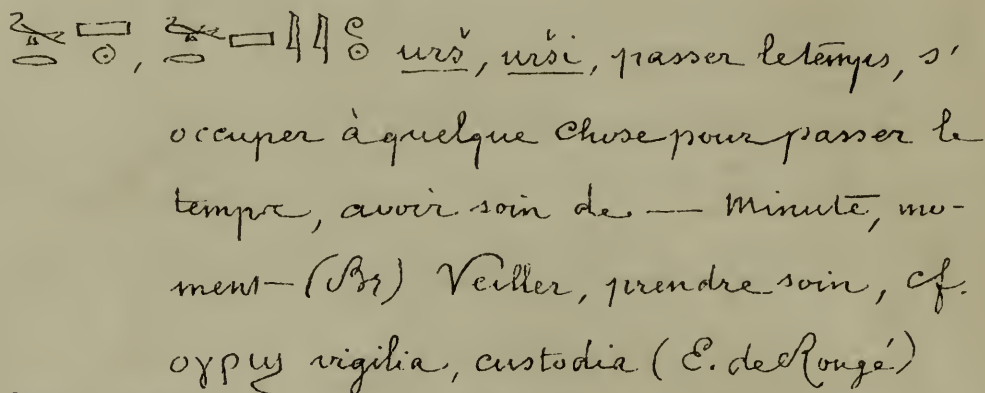 urš, urši, passer le temps, s'
occuper à quelque chose pour passer le
temps, avoir soin de — Minute, mo-
ment — (Br) Veiller, prendre soin, cf.
ⲟⲩⲣϣ vigilia, custodia (E. de Rougé)